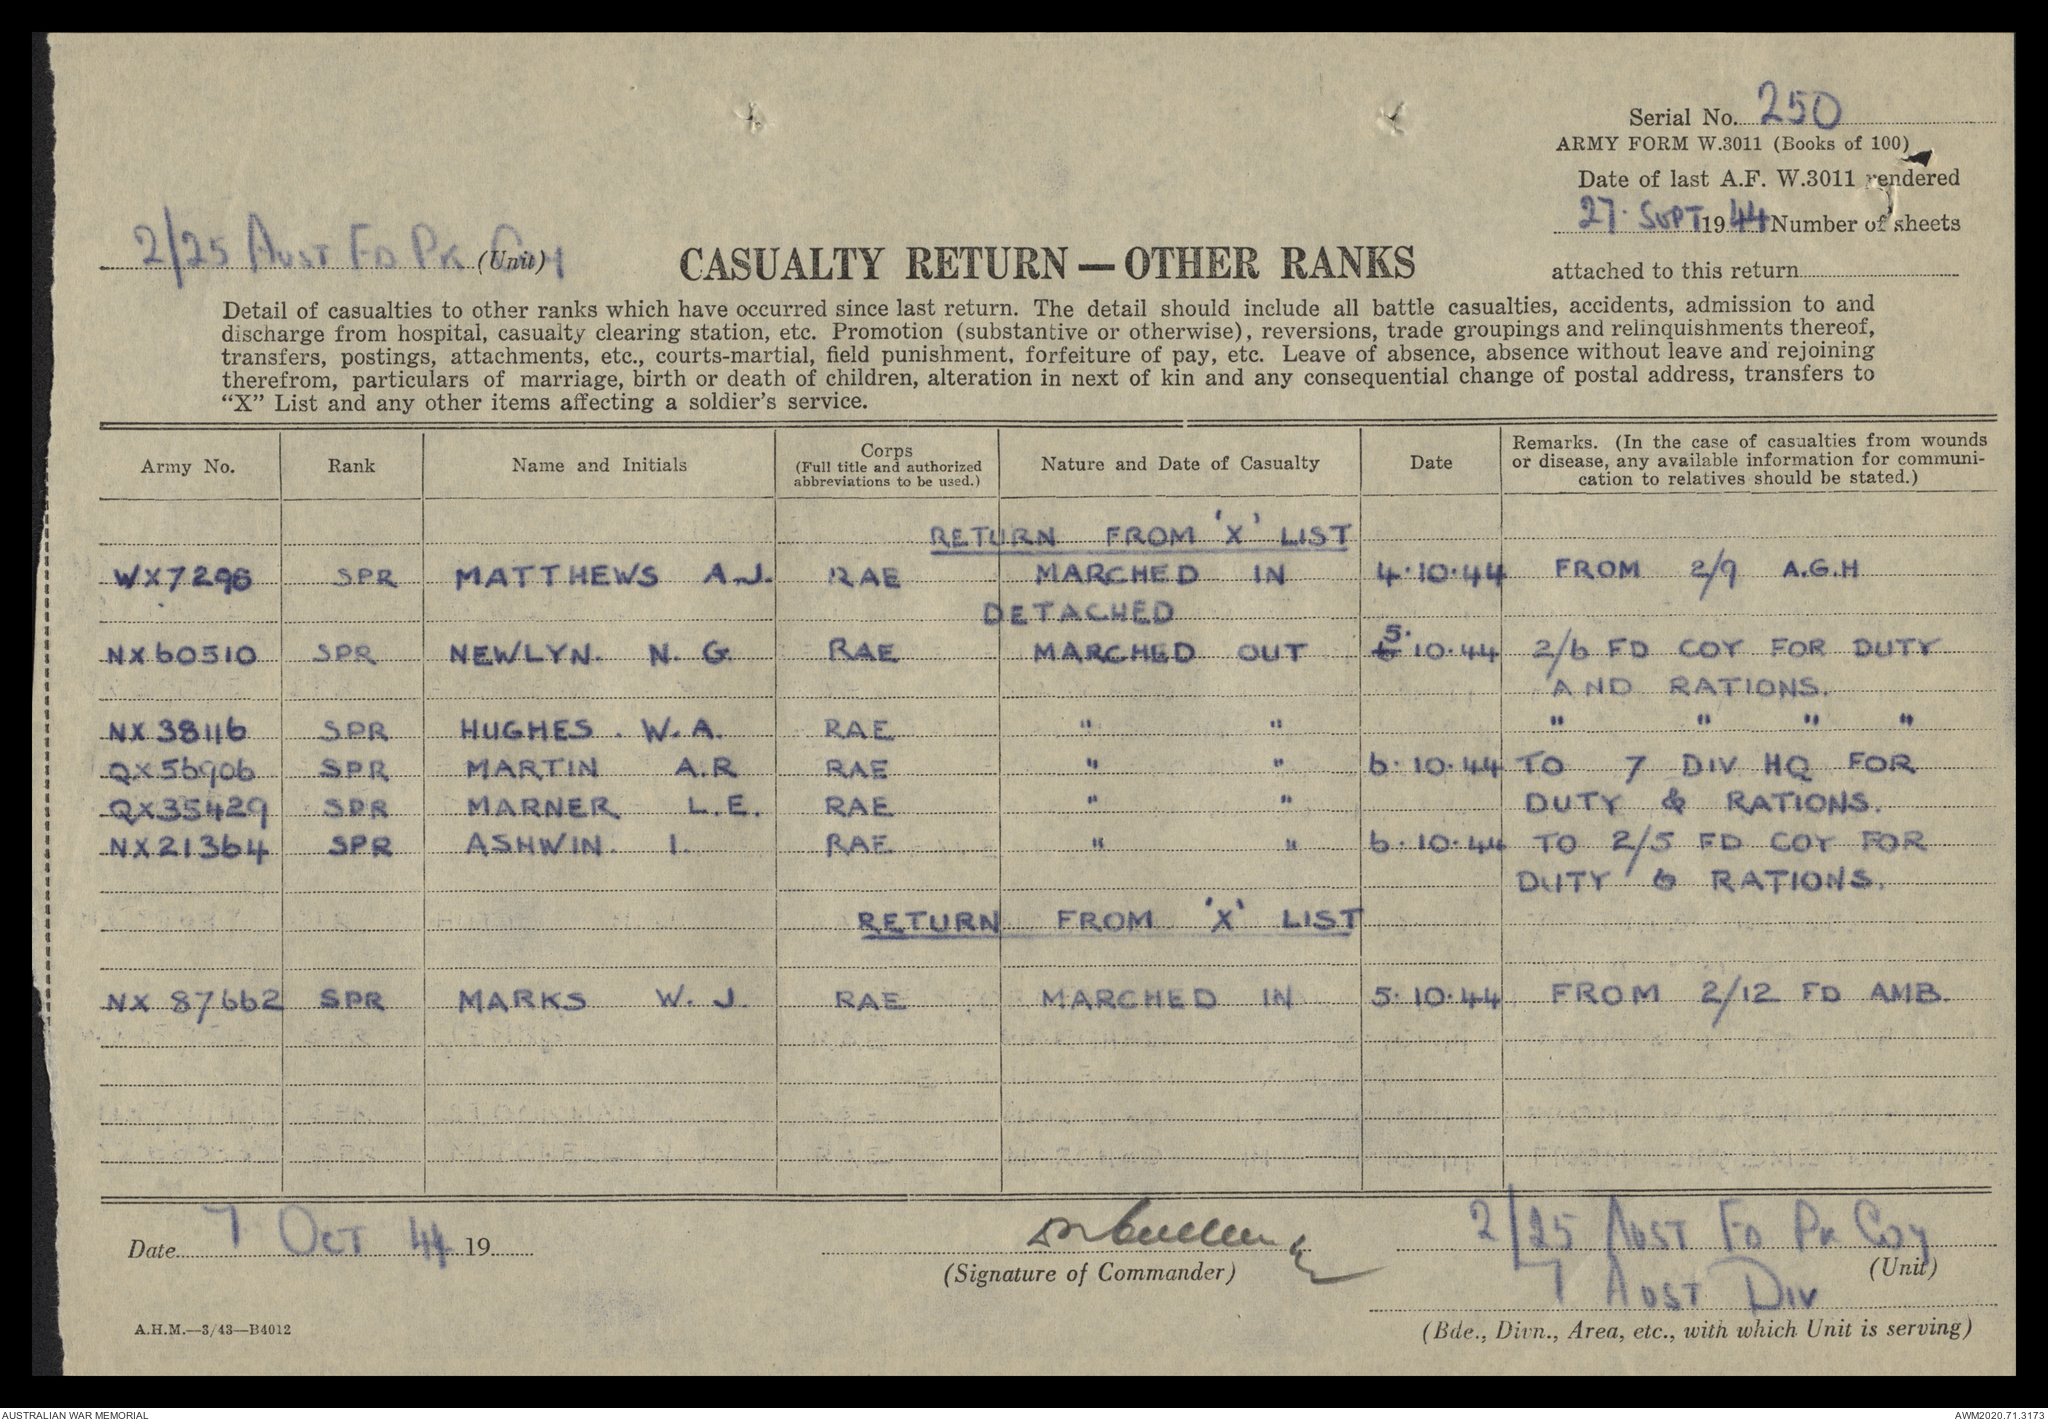 Serial No. 250
ARMY FORM W.3011 (Books of 100)
Date of last A.F. W.3011 rendered
27. SEPT 1944 Number of sheets
attached to this return
2/25 AUST FD PK COY (Unit)
CASUALTY RETURN — OTHER RANKS
Detail of casualties to other ranks which have occurred since last return. The detail should include all battle casualties, accidents, admission to and
discharge from hospital, casualty clearing station, etc. Promotion (substantive or otherwise), reversions, trade groupings and relinquishments thereof,
transfers, postings, attachments, etc., courts-martial, field punishment, forfeiture of pay, etc. Leave of absence, absence without leave and rejoining
therefrom, particulars of marriage, birth or death of children, alteration in next of kin and any consequential change of postal address, transfers to
“X” List and any other items affecting a soldier’s service.
Army No. Rank Name and Initials Corps (Full title and authorized abbreviations to be used.) Nature and Date of Casualty Date Remarks. (In the case of casualties from wounds or disease, any available information for communication to relatives should be stated.)
RETURN FROM 'X' LIST
WX7296 SPR MATTHEWS A.J. RAE MARCHED IN 4.10.44 FROM 2/9 A.G.H
DETACHED
NX60510 SPR NEWLYN. N. G. RAE MARCHED OUT 5.10.44 2/6 FD COY FOR DUTY
AND RATIONS.
NX38116 SPR HUGHES. W.A. RAE " " " " " "
QX56906 SPR MARTIN A.R RAE " " 6.10.44 TO 7 DIV HQ FOR
QX35429 SPR MARNER L.E. RAE " " DUTY & RATIONS.
NX21364 SPR ASHWIN. I. RAE " " 6.10.44 TO 2/5 FD COY FOR
DUTY & RATIONS.
RETURN FROM 'X' LIST
NX 87662 SPR MARKS W. J. RAE MARCHED IN 5.10.44 FROM 2/12 FD AMB.
Date 7 OCT 44 19
(Signature of Commander)
2/25 AUST FD PK COY
(Unit)
7 AUST DIV
(Bde., Divn., Area, etc., with which Unit is serving)
A.H.M.—3/43—B4012
AUSTRALIAN WAR MEMORIAL
AWM2020.71.3173